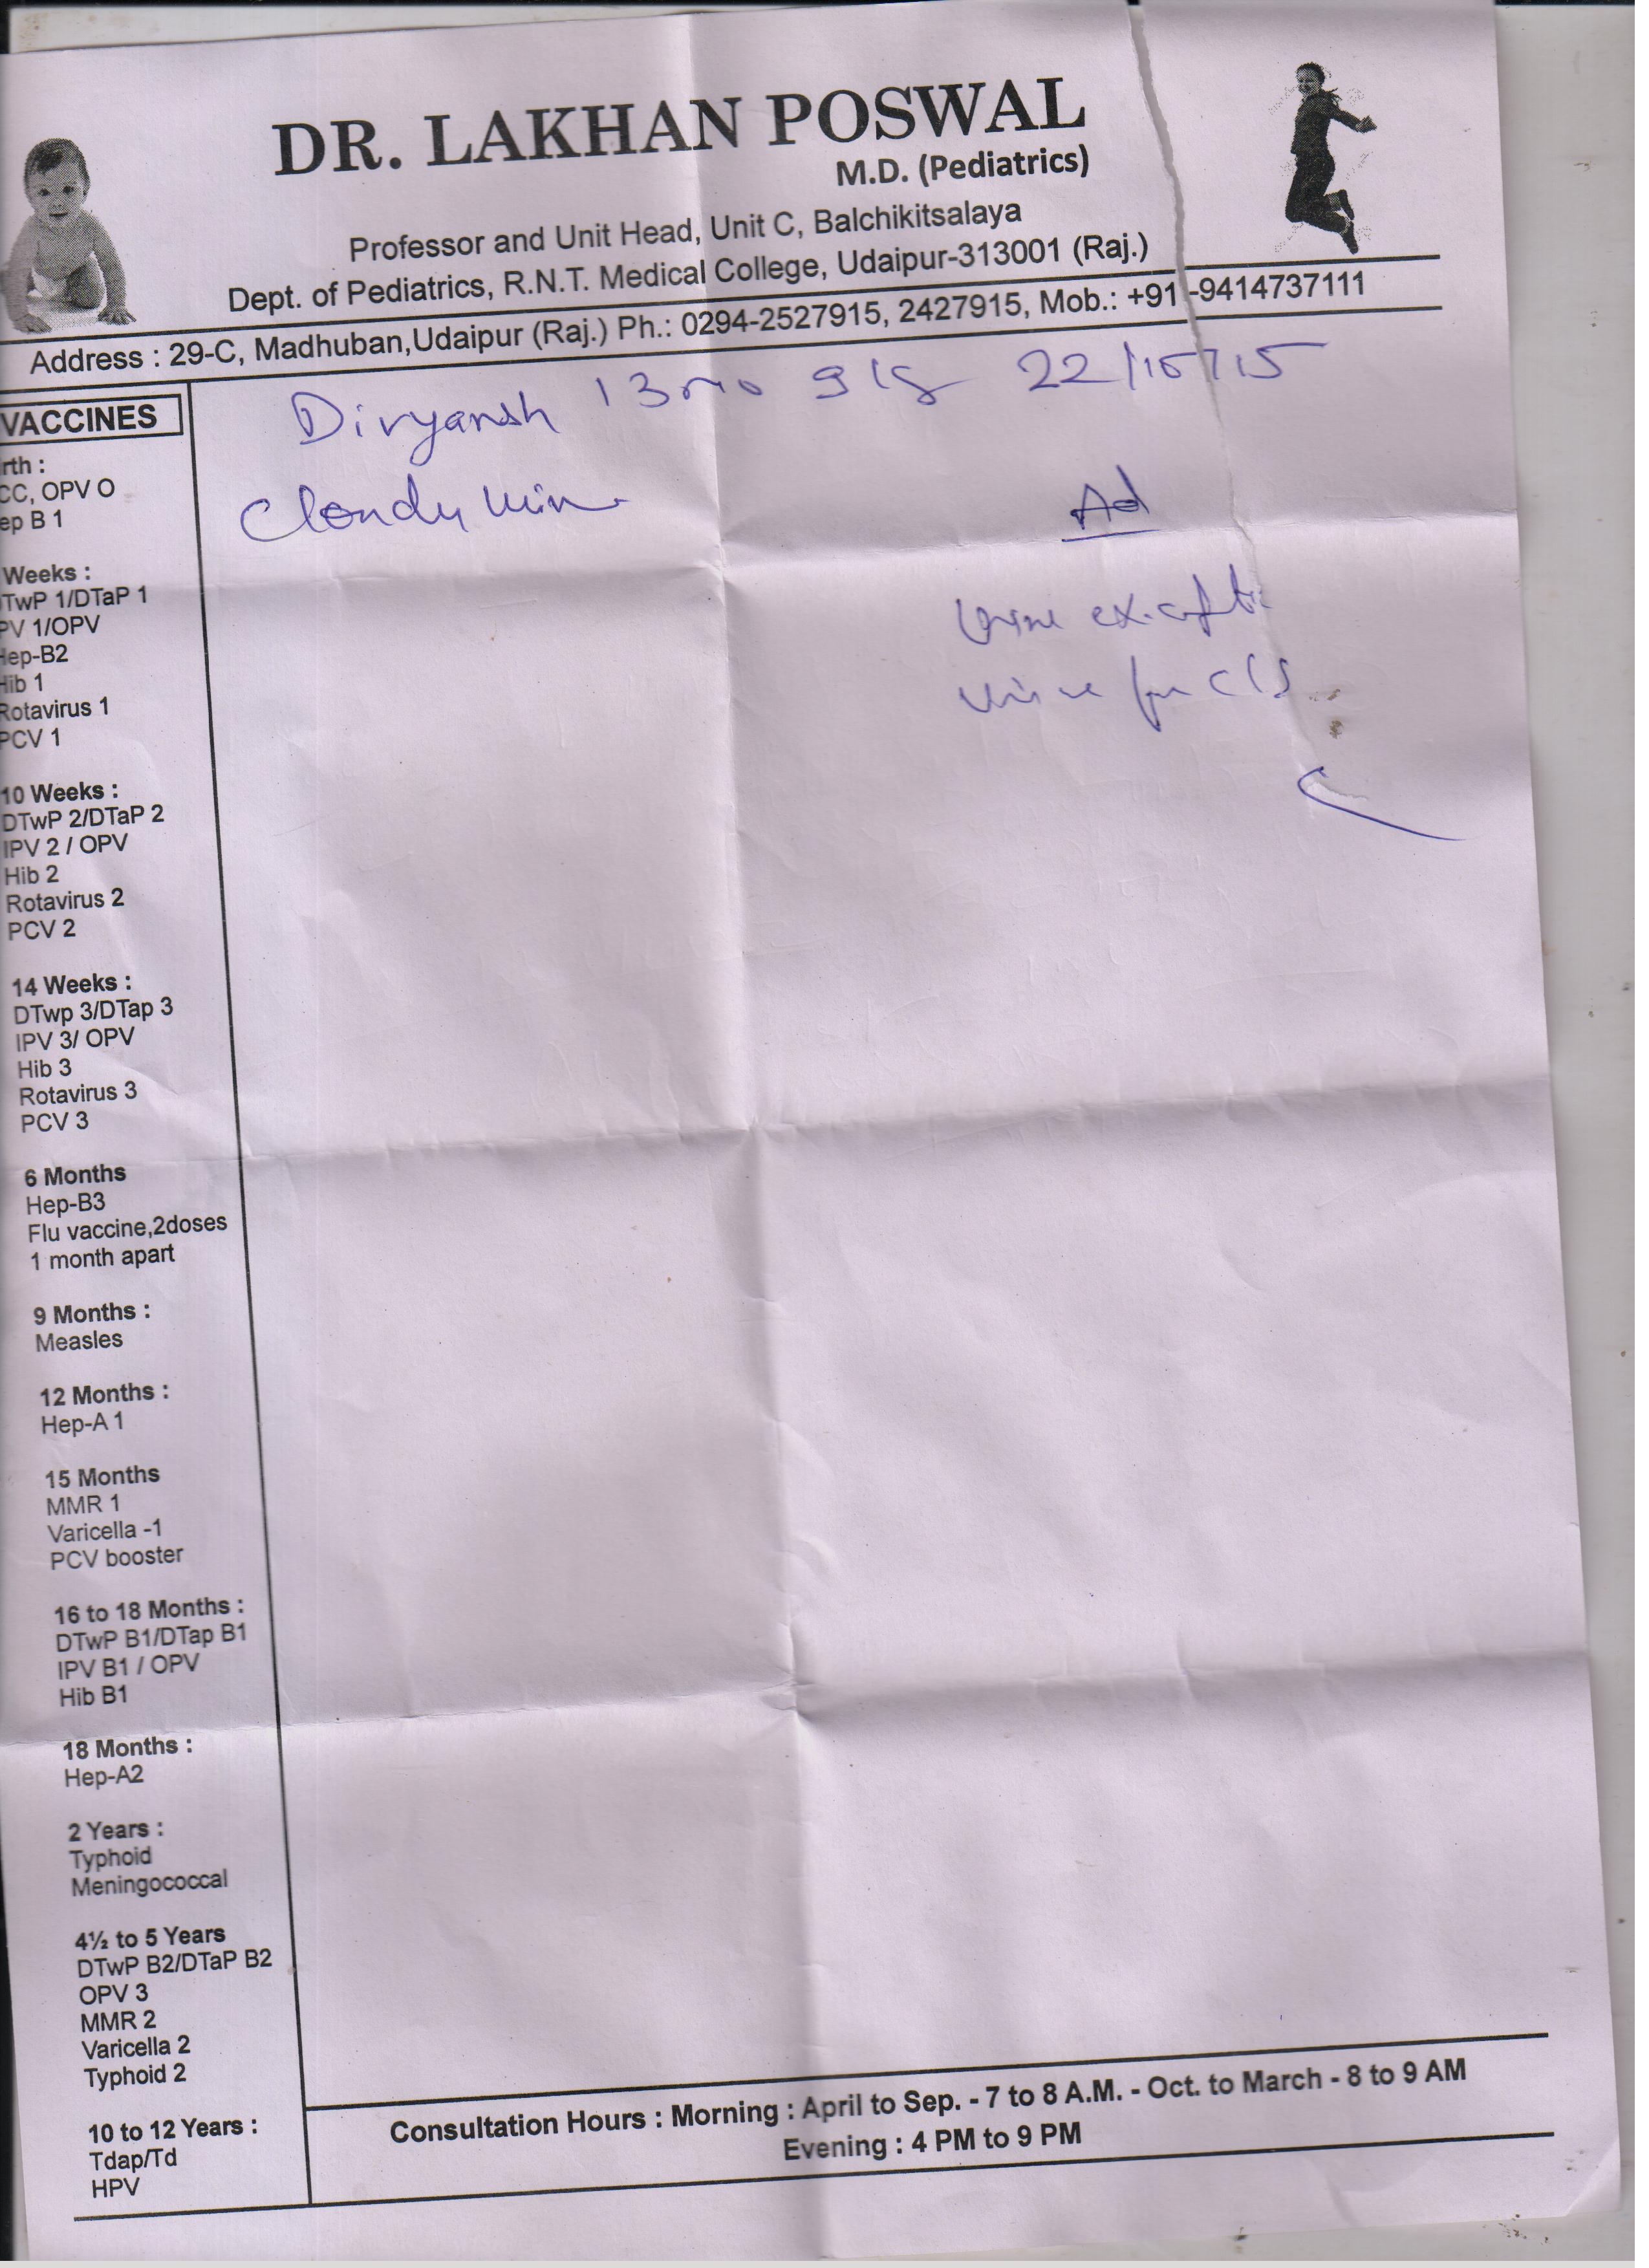 DR. LAKHAN POSWAL
M.D. (Pediatrics)
Professor and Unit Head, Unit C, Balchikitsalaya
Dept. of Pediatrics, R.N.T. Medical College, Udaipur-313001 (Raj.)
Address : 29-C, Madhuban,Udaipur (Raj.) Ph.: 0294-2527915, 2427915, Mob.: +91-9414737111
Divyansh 13 mo 9 kg 22/10/15
Cloudy urine
Ad
Urine
Urine for C/S
VACCINES
rth :
CC, OPV O
ep B 1
Weeks :
TwP 1/DTaP 1
PV 1/OPV
Hep-B2
Hib 1
Rotavirus 1
PCV 1
10 Weeks :
DTwP 2/DTaP 2
IPV 2 / OPV
Hib 2
Rotavirus 2
PCV 2
14 Weeks :
DTwp 3/DTap 3
IPV 3/ OPV
Hib 3
Rotavirus 3
PCV 3
6 Months
Hep-B3
Flu vaccine,2doses
1 month apart
9 Months :
Measles
12 Months :
Hep-A 1
15 Months
MMR 1
Varicella -1
PCV booster
16 to 18 Months :
DTwP B1/DTap B1
IPV B1 / OPV
Hib B1
18 Months :
Hep-A2
2 Years :
Typhoid
Meningococcal
4½ to 5 Years
DTwP B2/DTaP B2
OPV 3
MMR 2
Varicella 2
Typhoid 2
10 to 12 Years :
Tdap/Td
HPV
Consultation Hours : Morning : April to Sep. - 7 to 8 A.M. - Oct. to March - 8 to 9 AM
Evening : 4 PM to 9 PM